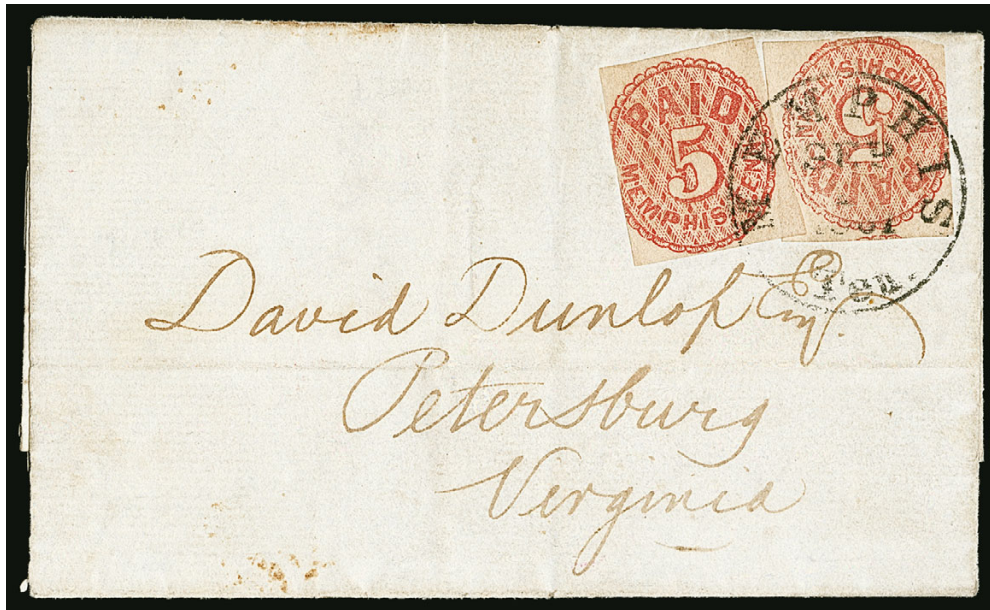 PAID
5
MEMPHIS TENN
PAID
5
MEMPHIS
MEMPHIS
1861
Ten.
David Dunlop Esq.
Petersburg
Virginia